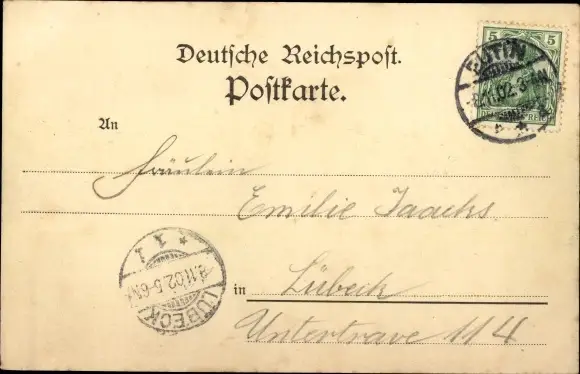 Deutsche Reichspost.
Postkarte.
5 5
EUTIN
8.11.02.3-4N
An
Fräulein
Emilie Isacks
LÜBECK
8.11.02.5-6N
1
in Lübeck
Untertrave 114